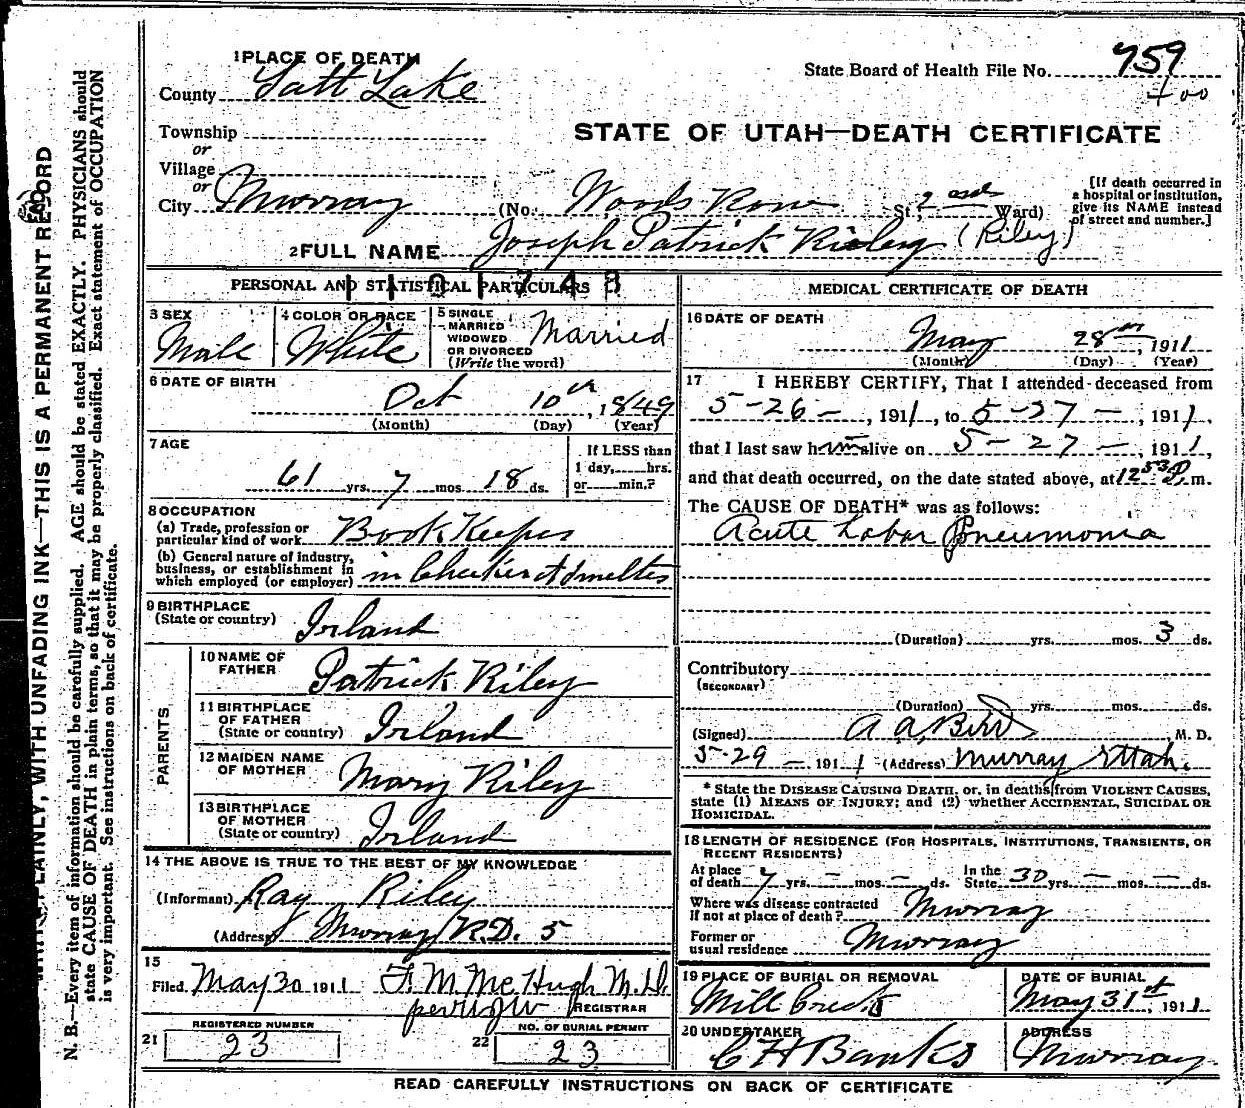 WRITE PLAINLY, WITH UNFADING INK—THIS IS A PERMANENT RECORD
N. B.—Every item of information should be carefully supplied. AGE should be stated EXACTLY. PHYSICIANS should
state CAUSE OF DEATH in plain terms, so that it may be properly classified. Exact statement of OCCUPATION
is very important. See instructions on back of certificate.
1 PLACE OF DEATH
County Salt Lake
State Board of Health File No. 759
400
Township
or
Village
or
City Murray
STATE OF UTAH—DEATH CERTIFICATE
(No. Woods Row St., 2nd Ward)
[If death occurred in
a hospital or institution,
give its NAME instead
of street and number.]
2 FULL NAME Joseph Patrick Risley (Riley)
PERSONAL AND STATISTICAL PARTICULARS
1101743
3 SEX
Male
4 COLOR OR RACE
White
5 SINGLE
MARRIED
WIDOWED
OR DIVORCED
(Write the word)
Married
6 DATE OF BIRTH
Oct 10th, 1849
(Month) (Day) (Year)
7 AGE
61 yrs. 7 mos. 18 ds.
If LESS than
1 day, hrs.
or min.?
8 OCCUPATION
(a) Trade, profession or
particular kind of work Book Keeper
(b) General nature of industry,
business, or establishment in
which employed (or employer) in Checker at Smelter
9 BIRTHPLACE
(State or country) Irland
PARENTS
10 NAME OF
FATHER Patrick Riley
11 BIRTHPLACE
OF FATHER
(State or country) Irland
12 MAIDEN NAME
OF MOTHER Mary Riley
13 BIRTHPLACE
OF MOTHER
(State or country) Irland
14 THE ABOVE IS TRUE TO THE BEST OF MY KNOWLEDGE
(Informant) Ray Riley
(Address) Murray R.D. 5
15
Filed May 30 1911 F. M. McHugh M.D.
per REGISTRAR
21 REGISTERED NUMBER
23
22 NO. OF BURIAL PERMIT
23
MEDICAL CERTIFICATE OF DEATH
16 DATE OF DEATH
May 28th, 1911
(Month) (Day) (Year)
17 I HEREBY CERTIFY, That I attended deceased from
5-26-, 1911, to 5-27-, 1911,
that I last saw him alive on 5-27-, 1911,
and that death occurred, on the date stated above, at 12 53 P. m.
The CAUSE OF DEATH* was as follows:
Acute Lobar Pneumonia
(Duration) yrs. mos. 3 ds.
Contributory
(SECONDARY)
(Duration) yrs. mos. ds.
(Signed) A A Bird, M. D.
5-29-, 1911 (Address) Murray Utah.
* State the DISEASE CAUSING DEATH, or, in deaths from VIOLENT CAUSES,
state (1) MEANS OF INJURY; and (2) whether ACCIDENTAL, SUICIDAL OR
HOMICIDAL.
18 LENGTH OF RESIDENCE (FOR HOSPITALS, INSTITUTIONS, TRANSIENTS, OR
RECENT RESIDENTS)
At place
of death 7 yrs. — mos. — ds.
In the
State 30 yrs. — mos. — ds.
Where was disease contracted
If not at place of death? Murray
Former or
usual residence Murray
19 PLACE OF BURIAL OR REMOVAL
Mill Creek
DATE OF BURIAL
May 31st, 1911
20 UNDERTAKER
C H Banks
ADDRESS
Murray
READ CAREFULLY INSTRUCTIONS ON BACK OF CERTIFICATE